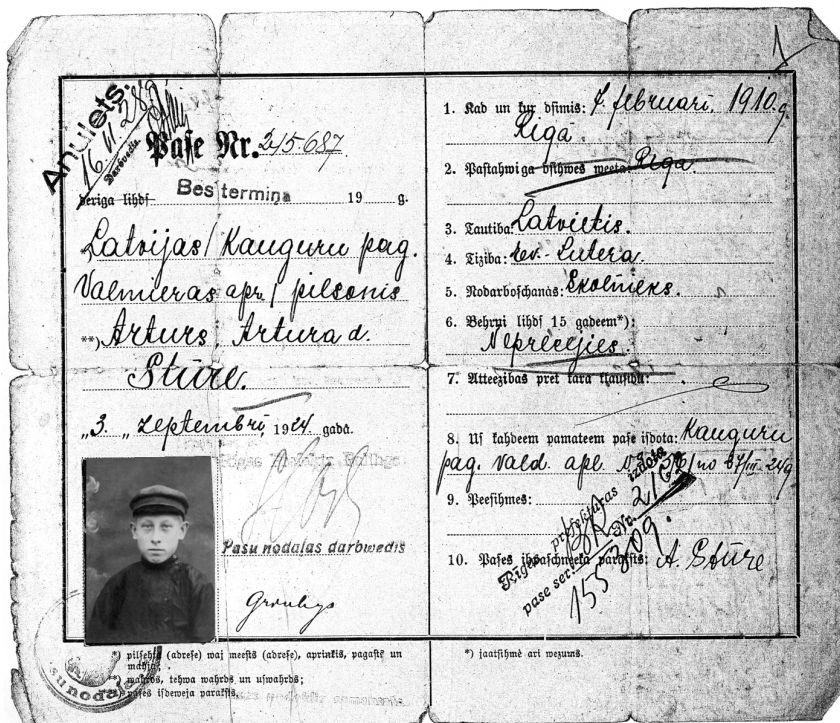 Anulets.
16. II 28
Darbwedis
Pase Nr. 215.687
deriga lihdſ Bes termiņa 19 g.
Latvijas / Kauguru pag.
Valmieras apr. / pilsonis
**) Arturs, Artura d.
Stūre.
„3. „ septembrī, 1924 gadā.
Pasu nodaļas darbwedis
*) pilſehta (adreſe) waj meeſts (adreſe), aprinķis, pagaſts un
mahja;
wahrds, tehwa wahrds un uſwahrds;
paſes iſdeweja parakſts.
1. Kad un kur dſimis: 7. februarī. 1910. g.
Rīgā.
2. Paſtahwiga dſihwes weeta: Rīga.
3. Tautiba: Latvietis.
4. Tiziba: ev.-Lutera.
5. Nodarboſchanās: Skolnieks.
6. Behrni lihdſ 15 gadeem*):
Neprecējies.
7. Atteezibas pret kara klauſibu:
8. Uſ kahdeem pamateem paſe iſdota: Kauguru
pag. vald. apl.
9. Peeſihmes:
Rīgas prefekturas izdota
pase ser. BK Nr.
10. Paſes ihpaſchneeka parakſts: A. Stūre
*) jaatſihmē arī wezums.